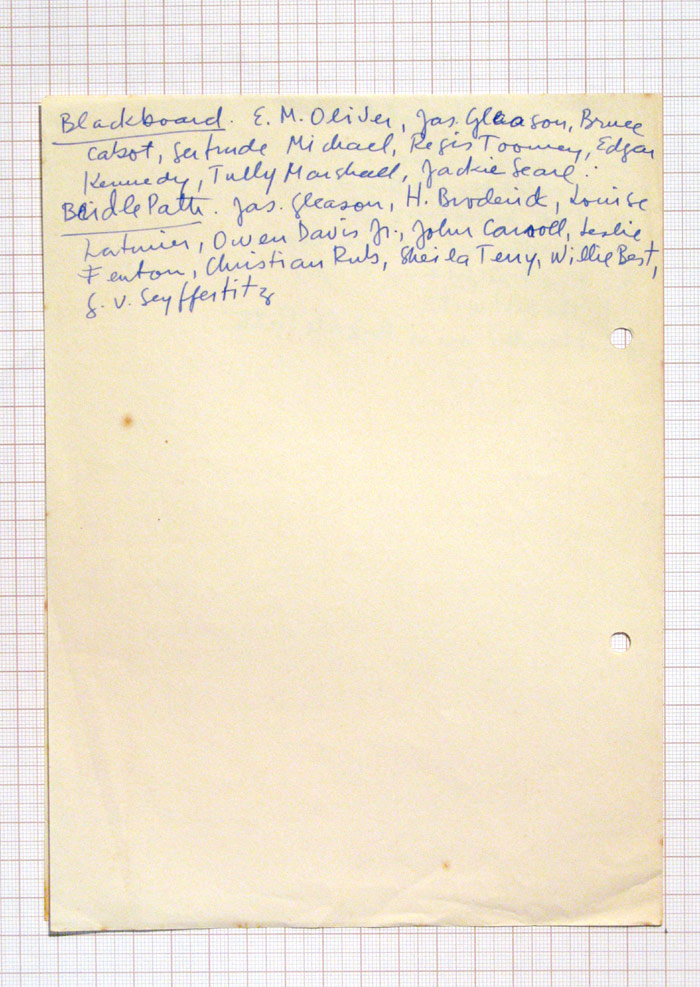 Blackboard. E. M. Oliver, Jas. Gleason, Bruce
Cabot, Gertrude Michael, Regis Toomey, Edgar
Kennedy, Tully Marshall, Jackie Searl.
Bridle Path. Jas. Gleason, H. Broderick, Louise
Latimer, Owen Davis Jr., John Carroll, Leslie
Fenton, Christian Rub, Sheila Terry, Willie Best,
G. v. Seyffertitz